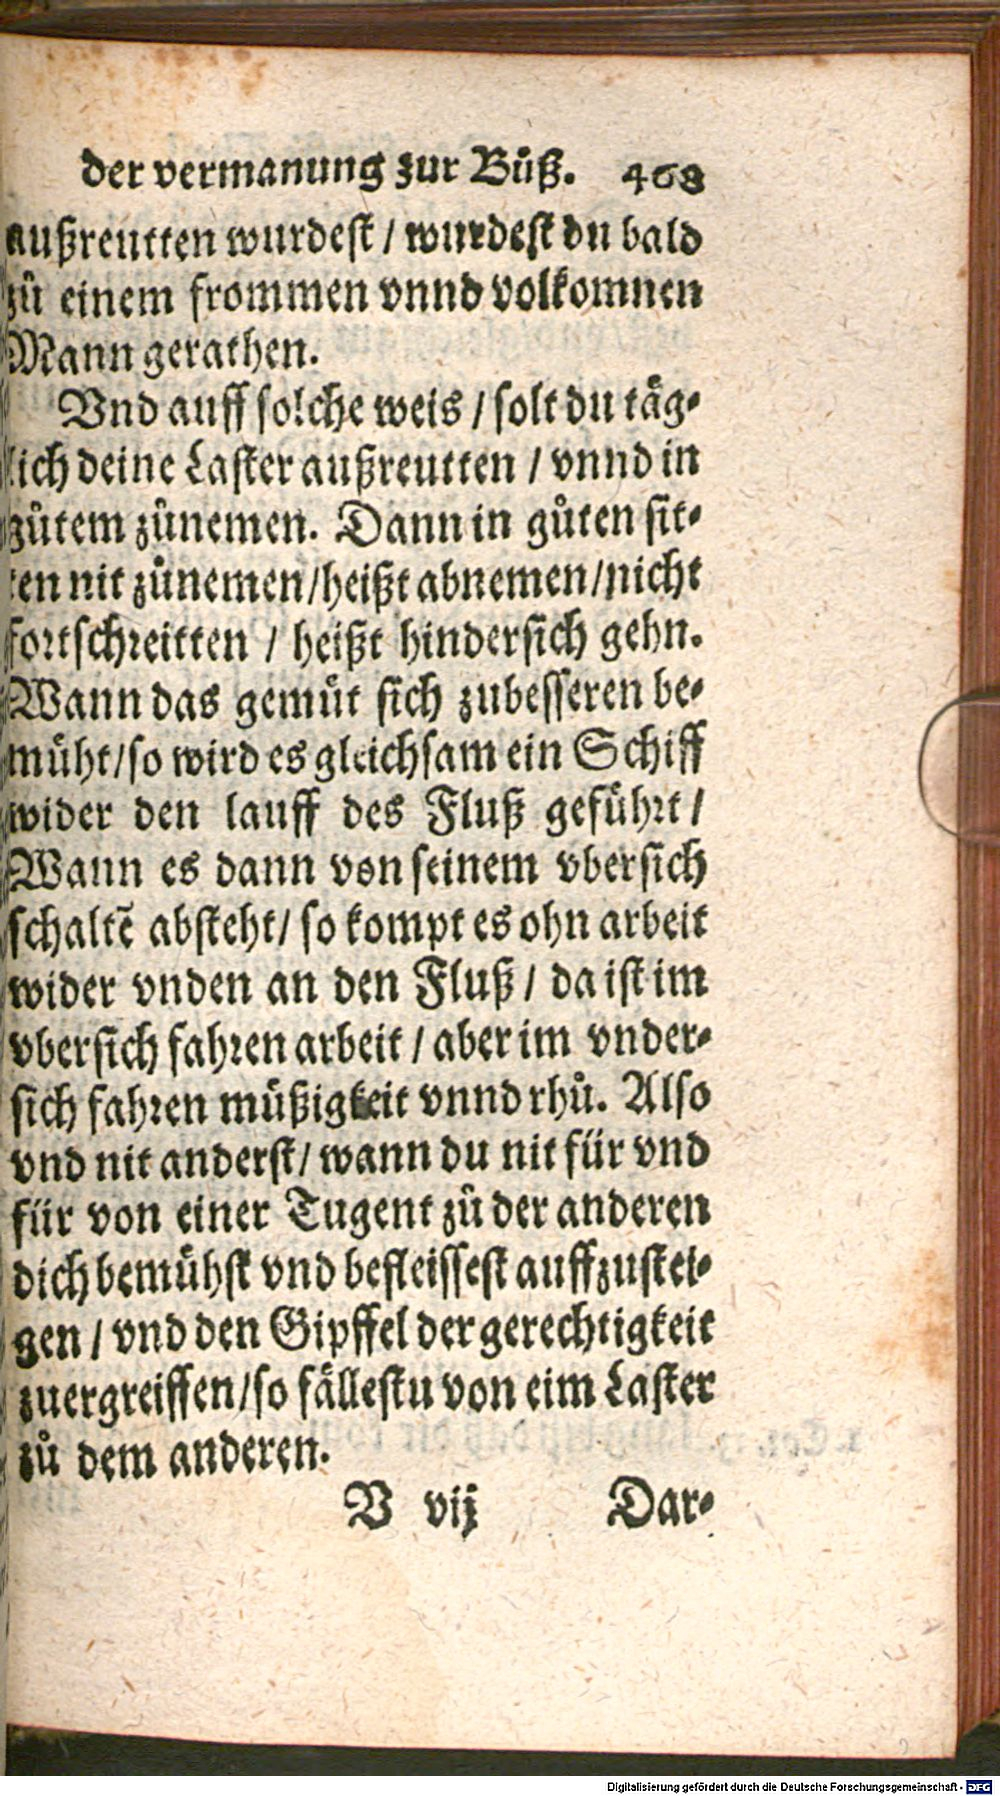 der vermanung zur Bůß. 468
außreutten wurdest / wurdest du bald
zů einem frommen vnnd volkomnen
Mann gerathen.
Vnd auff solche weis / solt du täg-
lich deine Laster außreutten / vnnd in
gůtem zůnemen. Dann in gůten sit-
ten nit zůnemen / heißt abnemen / nicht
fortschreitten / heißt hindersich gehn.
Wann das gemüt sich zubesseren be-
müht / so wird es gleichsam ein Schiff
wider den lauff des Fluß geführt /
Wann es dann von seinem vbersich
schaltẽ absteht / so kompt es ohn arbeit
wider vnden an den Fluß / da ist im
vbersich fahren arbeit / aber im vnder-
sich fahren müßigkeit vnnd rhů. Also
vnd nit anderst / wann du nit für vnd
für von einer Tugent zů der anderen
dich bemühst vnd befleissest auffzustei-
gen / vnd den Gipffel der gerechtigkeit
zuergreiffen / so fällestu von eim Laster
zů dem anderen.
V vij Dar-
Digitalisierung gefördert durch die Deutsche Forschungsgemeinschaft - DFG